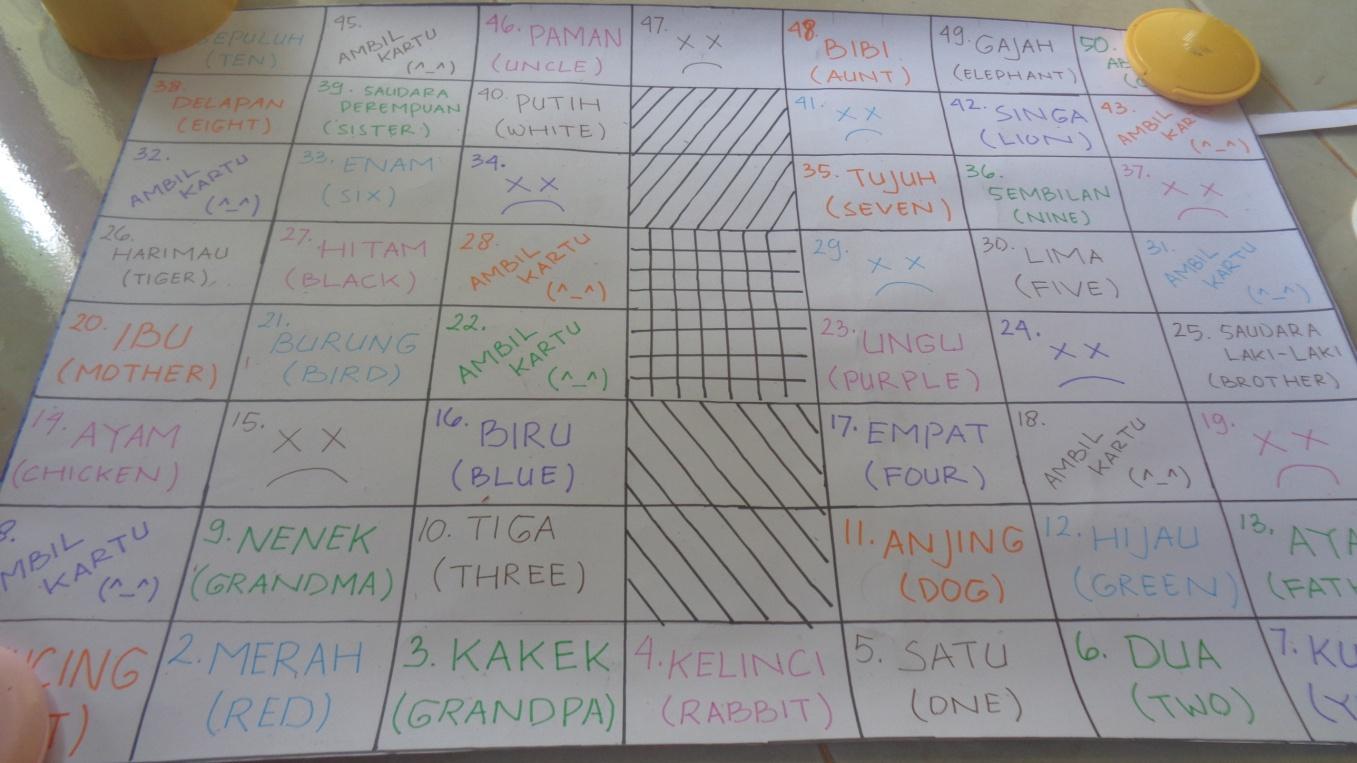 SEPULUH
(TEN)
45.
AMBIL
KARTU
(^_^)
46. PAMAN
(UNCLE)
47.
X X
48.
BIBI
(AUNT)
49. GAJAH
(ELEPHANT)
50.
38.
DELAPAN
(EIGHT)
39. SAUDARA
PEREMPUAN
(SISTER)
40. PUTIH
(WHITE)
41.
X X
42. SINGA
(LION)
43.
AMBIL
(^_^)
32.
AMBIL
KARTU
(^_^)
33. ENAM
(SIX)
34.
X X
35. TUJUH
(SEVEN)
36.
SEMBILAN
(NINE)
37.
X X
26.
HARIMAU
(TIGER)
27. HITAM
(BLACK)
28.
AMBIL
KARTU
(^_^)
29.
X X
30. LIMA
(FIVE)
31.
AMBIL
KARTU
(^_^)
20. IBU
(MOTHER)
21.
BURUNG
(BIRD)
22.
AMBIL
KARTU
(^_^)
23. UNGU
(PURPLE)
24.
X X
25. SAUDARA
LAKI-LAKI
(BROTHER)
14. AYAM
(CHICKEN)
15.
X X
16. BIRU
(BLUE)
17. EMPAT
(FOUR)
18.
AMBIL
KARTU
(^_^)
19.
X X
KARTU
(^_^)
9. NENEK
(GRANDMA)
10. TIGA
(THREE)
11. ANJING
(DOG)
12. HIJAU
(GREEN)
13.
2. MERAH
(RED)
3. KAKEK
(GRANDPA)
4. KELINCI
(RABBIT)
5. SATU
(ONE)
6. DUA
(TWO)
7.